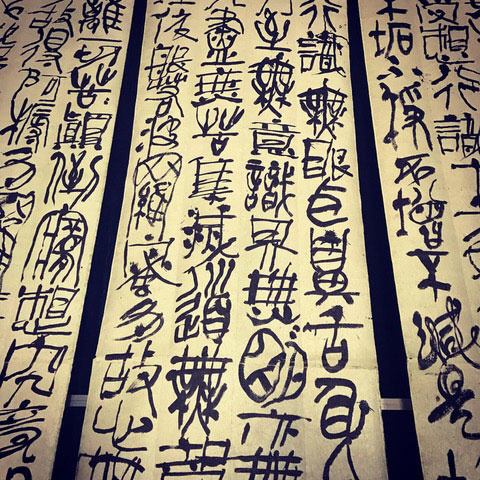 受想行識亦
垢不淨不增不減是
行識無眼耳鼻舌身
至無意識界無明亦無
盡無苦集滅道無智
依般若波羅蜜多故心無
離一切顛倒夢想究竟
故得阿耨多羅